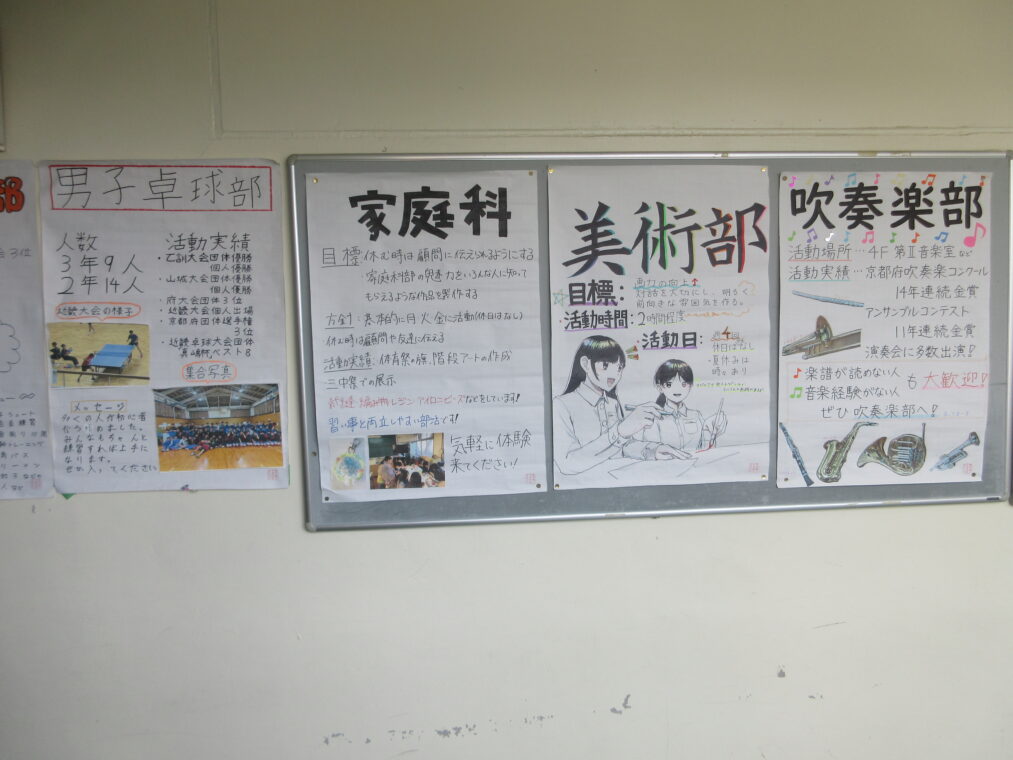 部
3位
男子卓球部
人数
3年9人
2年14人
近畿大会の様子
活動実績
・乙訓大会団体優勝
個人優勝
・山城大会団体優勝
個人優勝
・府大会団体3位
・近畿大会個人出場
・京都府団体選手権
3位
・近畿卓球大会団体
真嶋杯ベスト8
集合写真
メッセージ
練習すれば上手に
なります。
ぜひ入ってください
家庭科
目標:休む時は顧問に伝えられるようにする
家庭科部の魅力をいろんな人に知って
もらえるような作品を製作する
方針:基本的に月火金に活動(休日はなし)
・休む時は顧問や友達に伝える
活動実績:体育祭の旗、階段アートの作成
・三中祭での展示
刺繍・編み物・レジン・アイロンビーズなどをしています!
習い事と両立しやすい部活です!
気軽に体験
来てください!
美術部
目標:
画力の向上↑
対話を大切にし、明るく
前向きな雰囲気を作る。
・活動時間:2時間程度
・活動日:
週4回
休日はなし
・夏休みは
時々あり
吹奏楽部
活動場所…4F 第Ⅱ音楽室など
活動実績…京都府吹奏楽コンクール
14年連続金賞
アンサンブルコンテスト
11年連続金賞
演奏会に多数出演!
♪楽譜が読めない人
♫音楽経験がない人
も大歓迎!
ぜひ吹奏楽部へ!